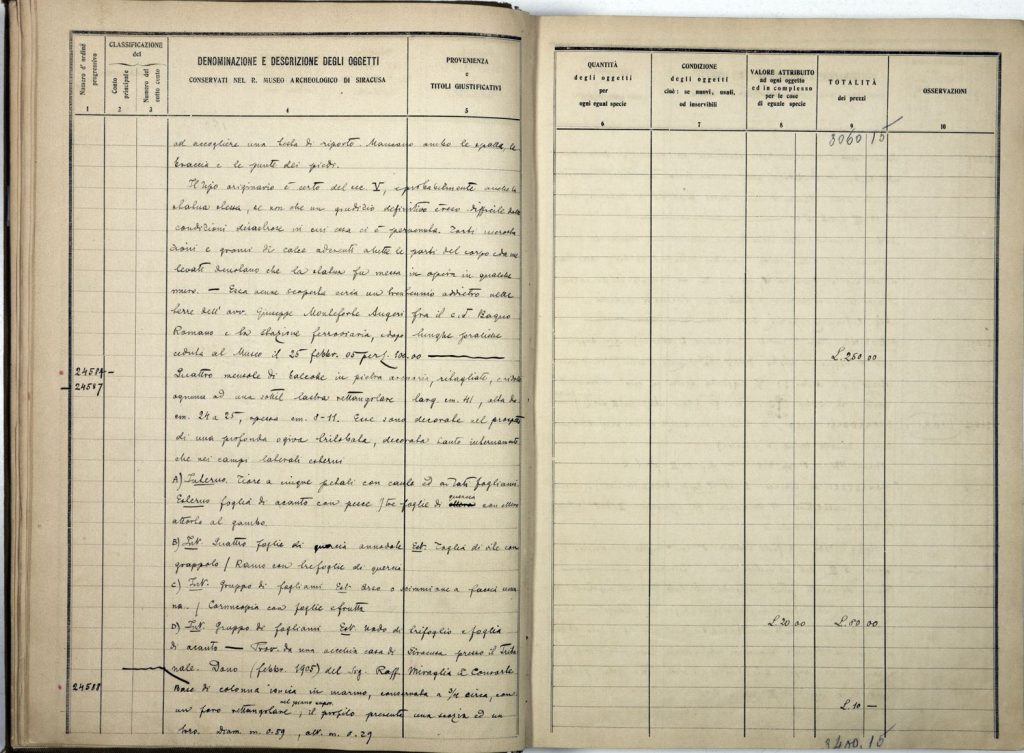 Numero d'ordine progressivo
CLASSIFICAZIONE del
Conto principale
Numero del sotto conto
DENOMINAZIONE E DESCRIZIONE DEGLI OGGETTI
CONSERVATI NEL R. MUSEO ARCHEOLOGICO DI SIRACUSA
PROVENIENZA
e
TITOLI GIUSTIFICATIVI
1 2 3 4 5
ad accogliere una testa di riporto. Mancano anche le spalle, le
braccia e le punte dei piedi.
Il tipo originario è certo del sec. V, e probabilmente anche la
statua stessa, se non che un giudizio definitivo è reso difficile dalle
condizioni disastrose in cui essa ci è pervenuta. Forti incrosta
zioni e grumi di calce aderenti a tutte le parti del corpo
levati denotano che la statua fu messa in opera in qualche
muro. — Essa venne scoperta circa un trentennio addietro nelle
terre dell'avv. Giuseppe Monteforte Augeri fra il c.d. Bagno
Romano e la stazione ferroviaria, e dopo lunghe pratiche
ceduta al Museo il 25 febbr. 05 per £. 100.00
24584 –
– 24587
Quattro mensole di balcone in pietra arenaria, ritagliate, e ridotte
ognuna ad una sottil lastra rettangolare larg. cm. 41, alta da
cm. 24 a 25, spessa cm. 8-11. Esse sono decorate nel prospetto
di una profonda ogiva trilobata, decorata tanto internamente
che nei campi laterali esterni
A) Interno. Fiore a cinque petali con caule ed fogliami
Esterno foglia di acanto con pesce / tre foglie di quercia con
attorto al gambo.
B) Int. Quattro foglie di quercia annodate Est. Foglia di vite con
grappolo / Ramo con tre foglie di quercia
C) Int. Gruppo di fogliami Est. Orso o scimmione a faccia uma
na. / Cornucopia con foglie e frutta
D) Int. Gruppo di fogliami Est. nodo di trifoglio e foglia
di acanto — Trov. da una vecchia casa di Siracusa presso il Tribu
nale. Dono (febbr. 1905) del Sig. Raff. Miraglia
24588
Base di colonna ionica in marmo, conservata a 3/4 circa, con
un foro rettangolare nel piano super., il profilo presenta una scozia ed un
toro. Diam. m. 0.59, alt. m. 0.29
QUANTITÀ
degli oggetti
per
ogni egual specie
CONDIZIONE
degli oggetti
cioè: se nuovi, usati,
od inservibili
VALORE ATTRIBUITO
ad ogni oggetto
ed in complesso
per le cose
di eguale specie
TOTALITÀ
dei prezzi
OSSERVAZIONI
6 7 8 9 10
3060 15
L. 250 00
L. 20 00 L. 80 00
L. 10 —
3400.15